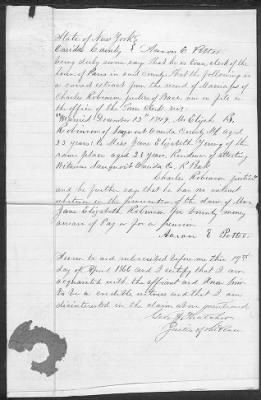 State of New York
Oneida County } Aaron E Petter
being duly sworn say that he is town clerk of the
town of Paris in said county. That the following is
a correct extract from the record of Marriages of
Charles Robinson, justice of Peace now on file in
the office of the Town Clerk viz
"Married December 13th 1849. Mr Elijah B.
Robinson of Oneida County NY aged
23 years to Miss Jane Elizabeth Young of the
same place aged 23 years. Residence of attesting
Witness Sauquoit Oneida Co.
Charles Robinson justice"
and he further says that he has no interest
whatever in the prosecution of the claim of Mrs
Jane Elizabeth Robinson for bounty money
arrears of Pay or for a pension
Aaron E Petter
Sworn to and subscribed before me this 19th
day of April 1866 and I certify that I am
acquainted with the affiant and know him
to be a credible witness and that I am
disinterested in the claim above mentioned
Geo
Justice of the Peace